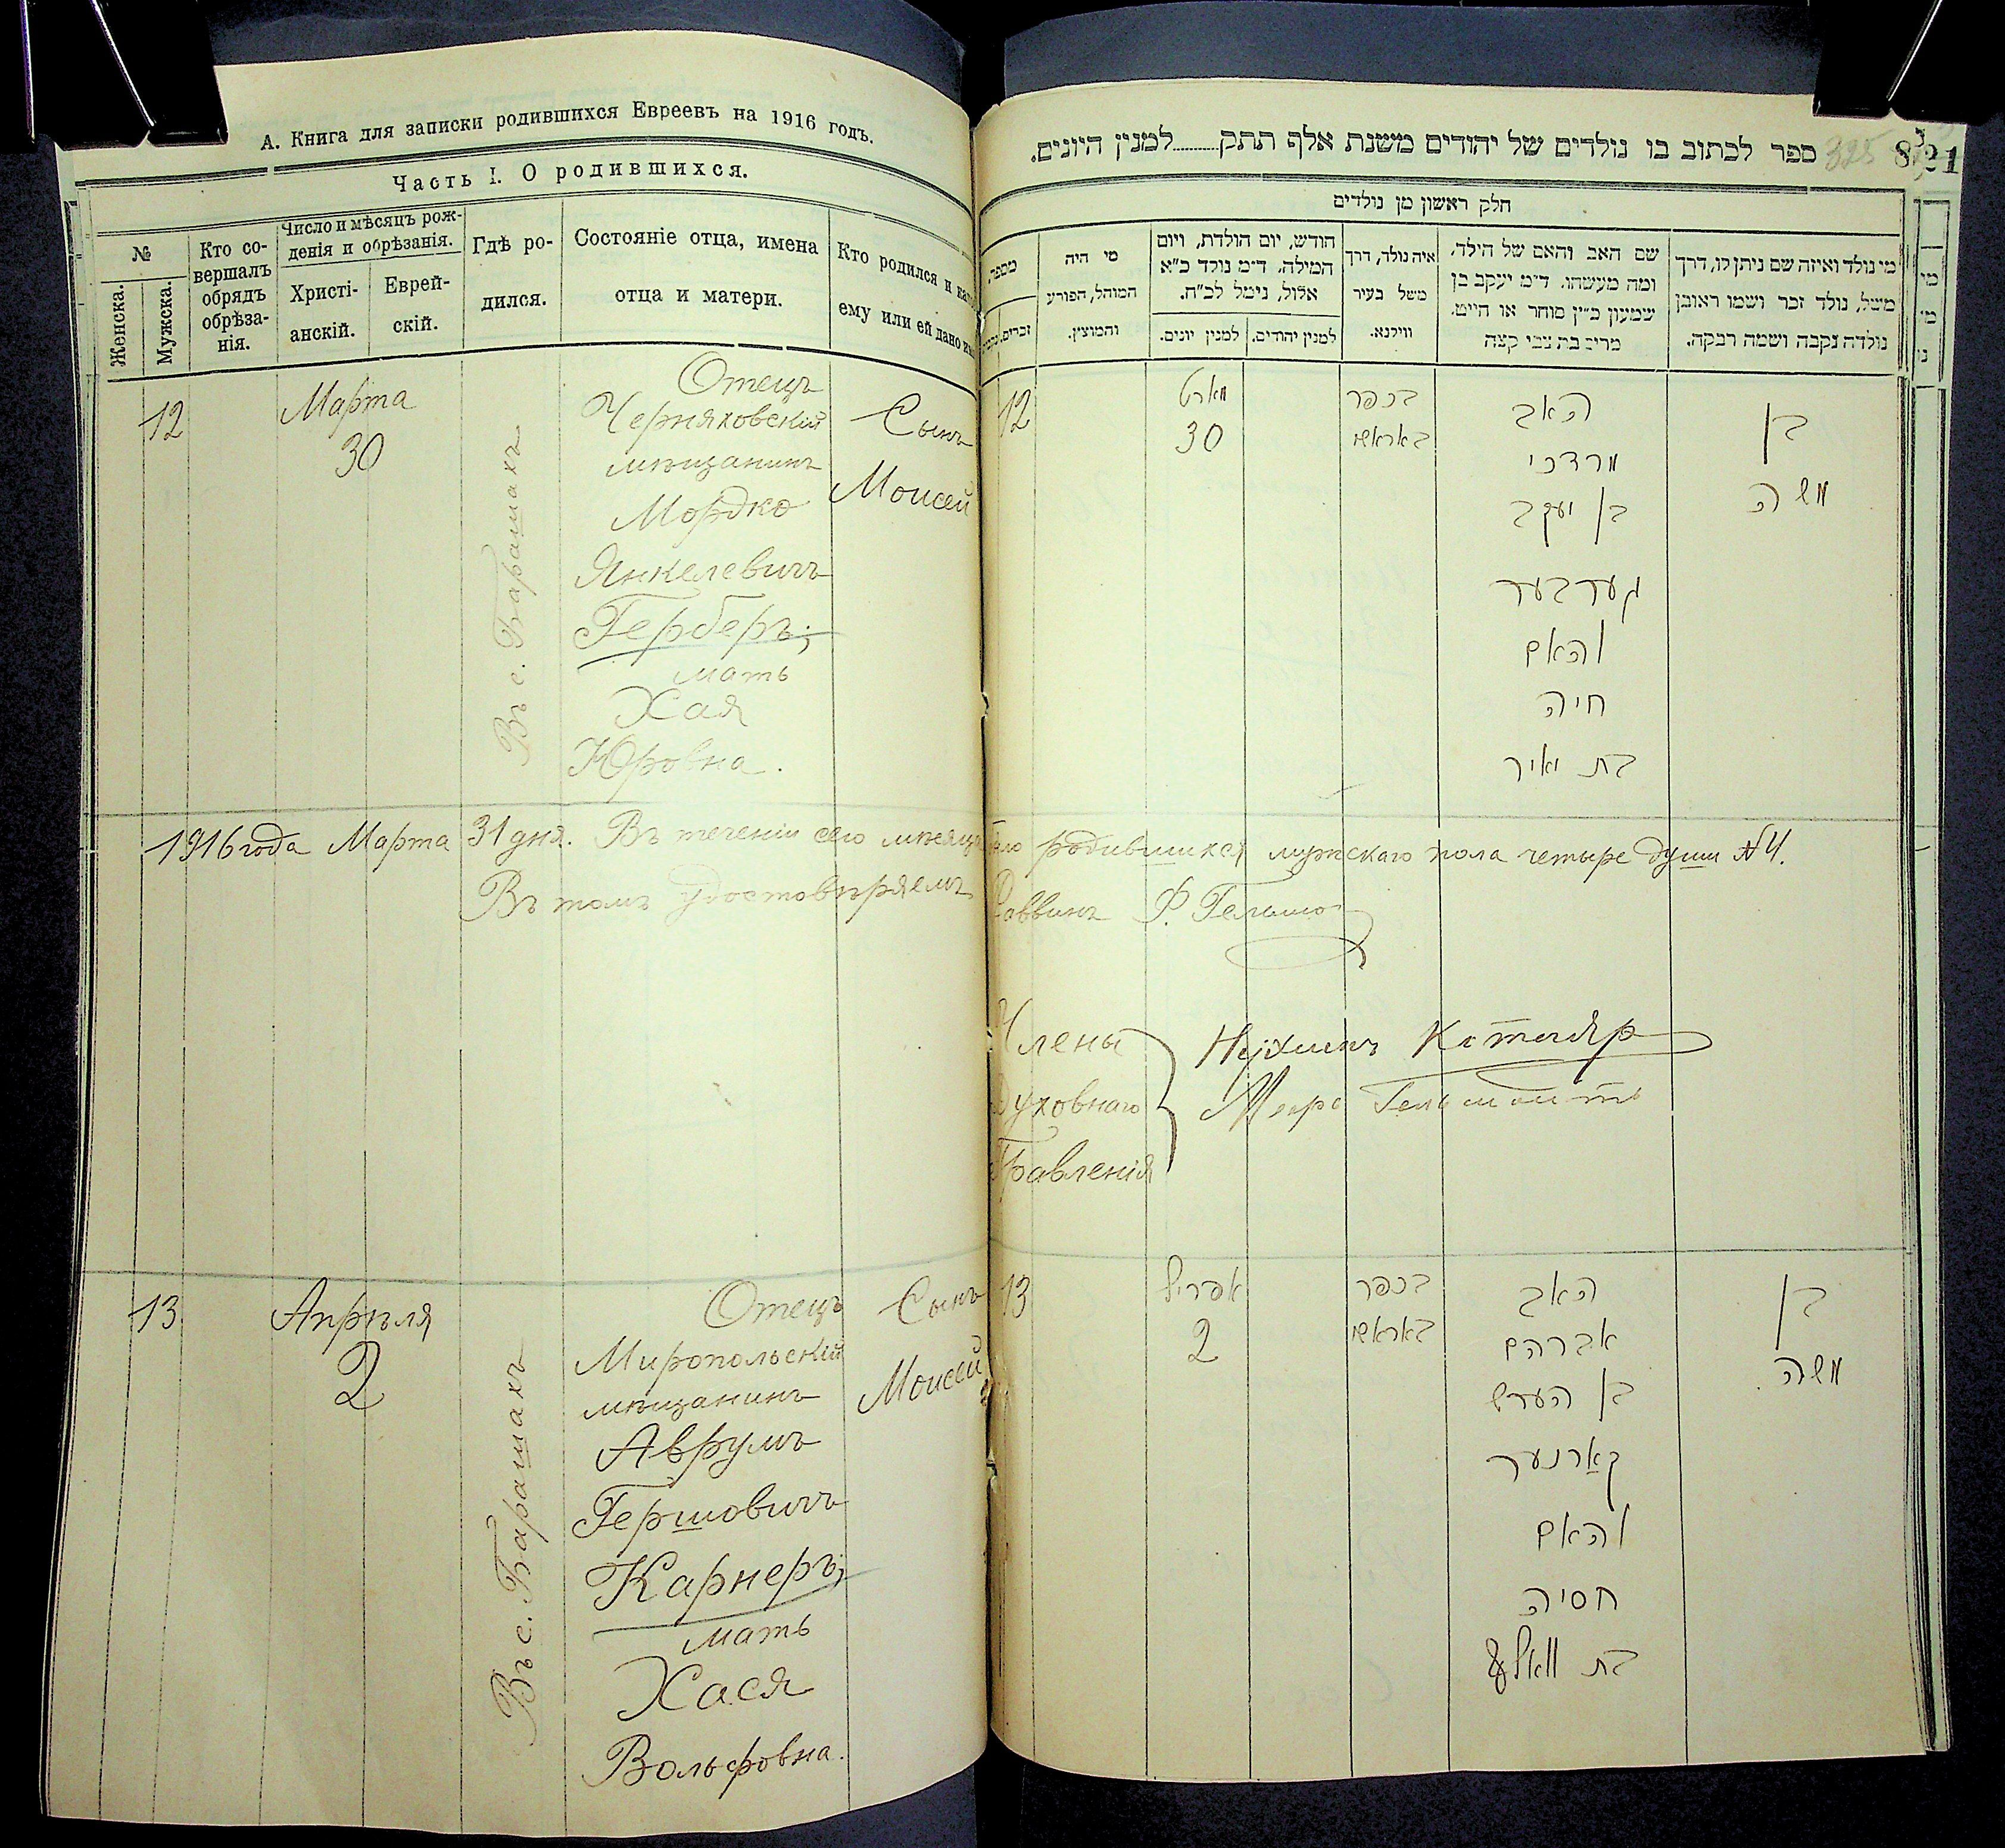 А. Книга для записки родившихся Евреевъ на 1916 годъ.
Часть I. О родившихся.
№
Женска.
Мужска.
Кто со-
вершалъ
обрядъ
обрѣза-
нія.
Число и мѣсяцъ рож-
денія и обрѣзанія.
Христі-
анскій.
Еврей-
скій.
Гдѣ ро-
дился.
Состояніе отца, имена
отца и матери.
Кто родился и
ему или ей дано
12
Марта
30
Въ с. Барашахъ
Отецъ
Черняховскій
мѣщанинъ
Мордко
Янкелевичъ
Герберъ;
мать
Хая
Юровна.
Сынъ
Моисей
1916 года Марта 31 дня. Въ теченіи сего мѣсяца было родившихся мужскаго пола четыре души №4.
Въ томъ удостовѣряемъ Раввинъ Ф.
Члены
Духовнаго
Правленія
13
Апрѣля
2
Въ с. Барашахъ
Отецъ
Миропольскій
мѣщанинъ
Аврумъ
Гершовичъ
Карнеръ;
мать
Хася
Вольфовна.
Сынъ
Моисей
ספר לכתוב בו נולדים של יהודים משנת אלף תתק........למנין היונים.
325
821
חלק ראשון מן נולדים
מספר
זכרים.
מי היה
המוהל, הפורע
והמוצץ.
חודש, יום הולדת, ויום
המילה. ד״מ נולד כ״א
אלול, נימל לכ״ח.
למנין יונים.
למנין יהודים.
איה נולד, דרך
משל בעיר
ווילנא.
שם האב והאם של הילד.
ומה מעשהו. ד״מ יעקב בן
שמעון כ״ץ סוחר או חייט.
מרים בת צבי קצה
מי נולד ואיזה שם ניתן לו, דרך
משל, נולד זכר ושמו ראובן
נולדה נקבה ושמה רבקה.
12
מארט
30
בכפר
באראש
האב
מרדכי
בן יעקב
גערבער
והאם
חיה
בת יאיר
בן
משה
13
אפריל
2
בכפר
באראש
האב
אברהם
בן הערש
קארנער
והאם
חסיה
בת וואלף
בן
משה